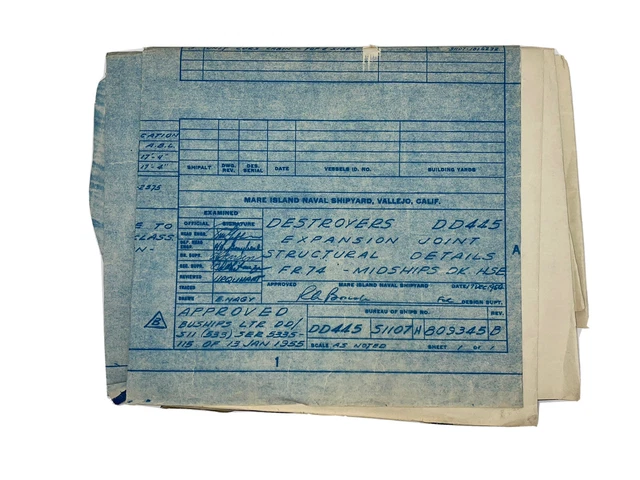 CATION
A.B.C.
17'-4"
17'-4"
-2575
E TO
CLASS
N-
SHIPALT DWG. REV. DES. SERIAL DATE VESSELS ID. NO. BUILDING YARDS
MARE ISLAND NAVAL SHIPYARD, VALLEJO, CALIF.
EXAMINED
OFFICIAL SIGNATURE
REVIEWED URQUHART
TRACED
DRAWN E.NAGY
DESTROYERS DD445
EXPANSION JOINT
STRUCTURAL DETAILS
FR.74 -MIDSHIPS DK. HSE
APPROVED MARE ISLAND NAVAL SHIPYARD DATE
For DESIGN SUPT.
A
APPROVED
BUSHIPS LTR DD/
S11 (533) SER 5335-
115 OF 13 JAN 1955
B
BUREAU OF SHIPS NO. REV.
DD445 S1107 H 809345 B
SCALE AS NOTED SHEET 1 OF 1
1